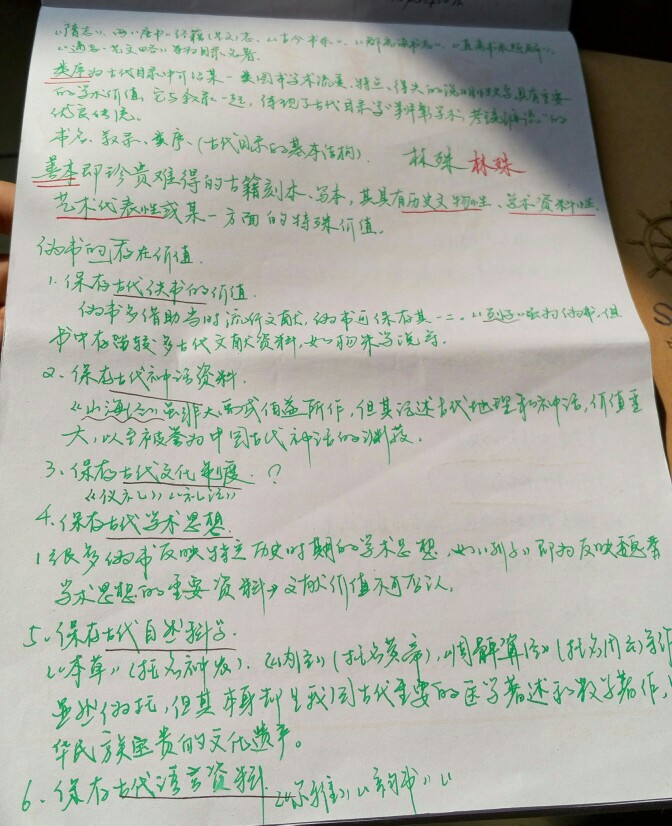 《隋志》、两《唐书》经籍(艺文)志、《古今书录》、《郡斋读书志》、《直斋书录解题》、
《通志·艺文略》等为目录名著。
类序为古代目录中介绍某一类图书学术流变、特点、得失的说明性文字,具有重要
的学术价值,它与叙录一起,体现了古代目录学"辨章学术,考镜源流"的
优良传统。
书名、叙录、类序、(古代目录的基本结构)。
林殊 林殊
善本即珍贵难得的古籍刻本、写本,其具有历史文物性、学术资料性、
艺术代表性或某一方面的特殊价值。
伪书的存在价值
1. 保存古代佚书的价值
伪书多借助当时流行文献,伪书可保存其一二。《列子》虽为伪书,但
书中存留较多古代文献资料,如杨朱学说等。
2、保存古代神话资料
《山海经》虽非大禹或伯益所作,但其记述古代地理和神话,价值重
大,以至被誉为中国古代神话的渊薮。
3、保存古代文化制度. ?
《仪礼》《礼记》
4. 保存古代学术思想
很多伪书反映特定历史时期的学术思想,如《列子》即为反映魏晋
学术思想的重要资料→文献价值不可否认。
5、保存古代自然科学
《本草》(托名神农)、《内经》(托名黄帝),《周髀算经》(托名周公)等作
虽然伪托,但其本身却是我国古代重要的医学著述和数学著作
华民族宝贵的文化遗产。
6、保存古代语言资料
《尔雅》《